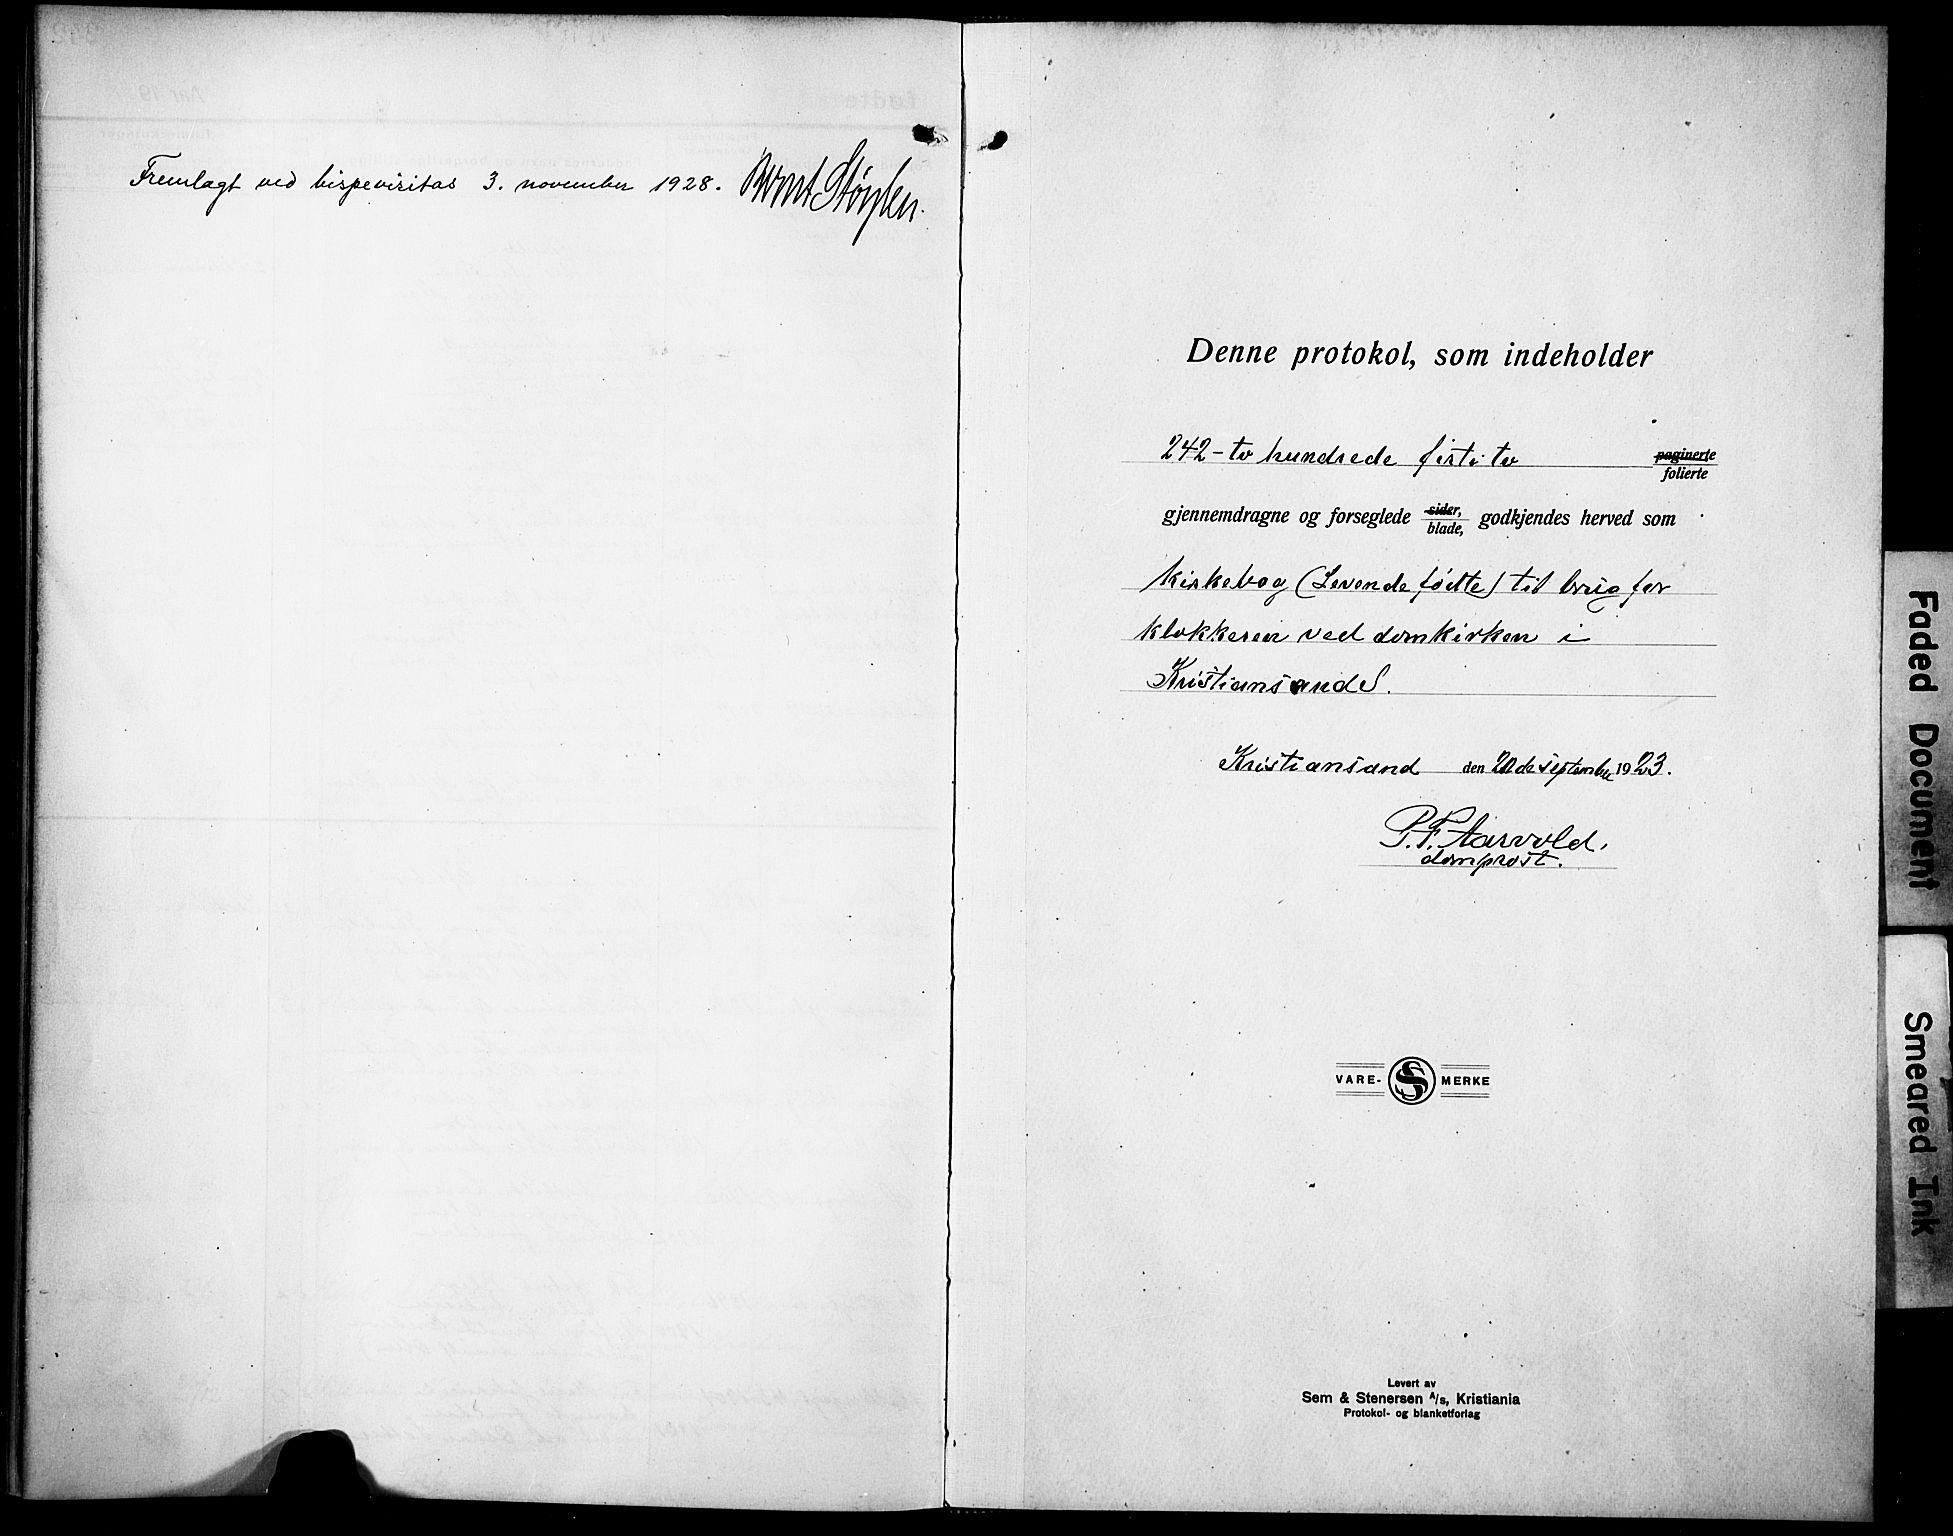 Fremlagt ved bispevisitas 3. november 1928. Bernt Støylen.
Denne protokol, som indeholder
242 - to hundrede firti to paginerte
folierte
gjennemdragne og forseglede sider, godkjendes herved som
blade,
kirkebog (Levende fødte) til brug for
klokkeren ved domkirken i
Kristiansand S.
Kristiansand den de september 1923.
P. F. Aarvold,
domprost.
VARE- SS MERKE
Levert av
Sem & Stenersen A/s, Kristiania
Protokol- og blanketforlag
Faded Document
Smeared Ink